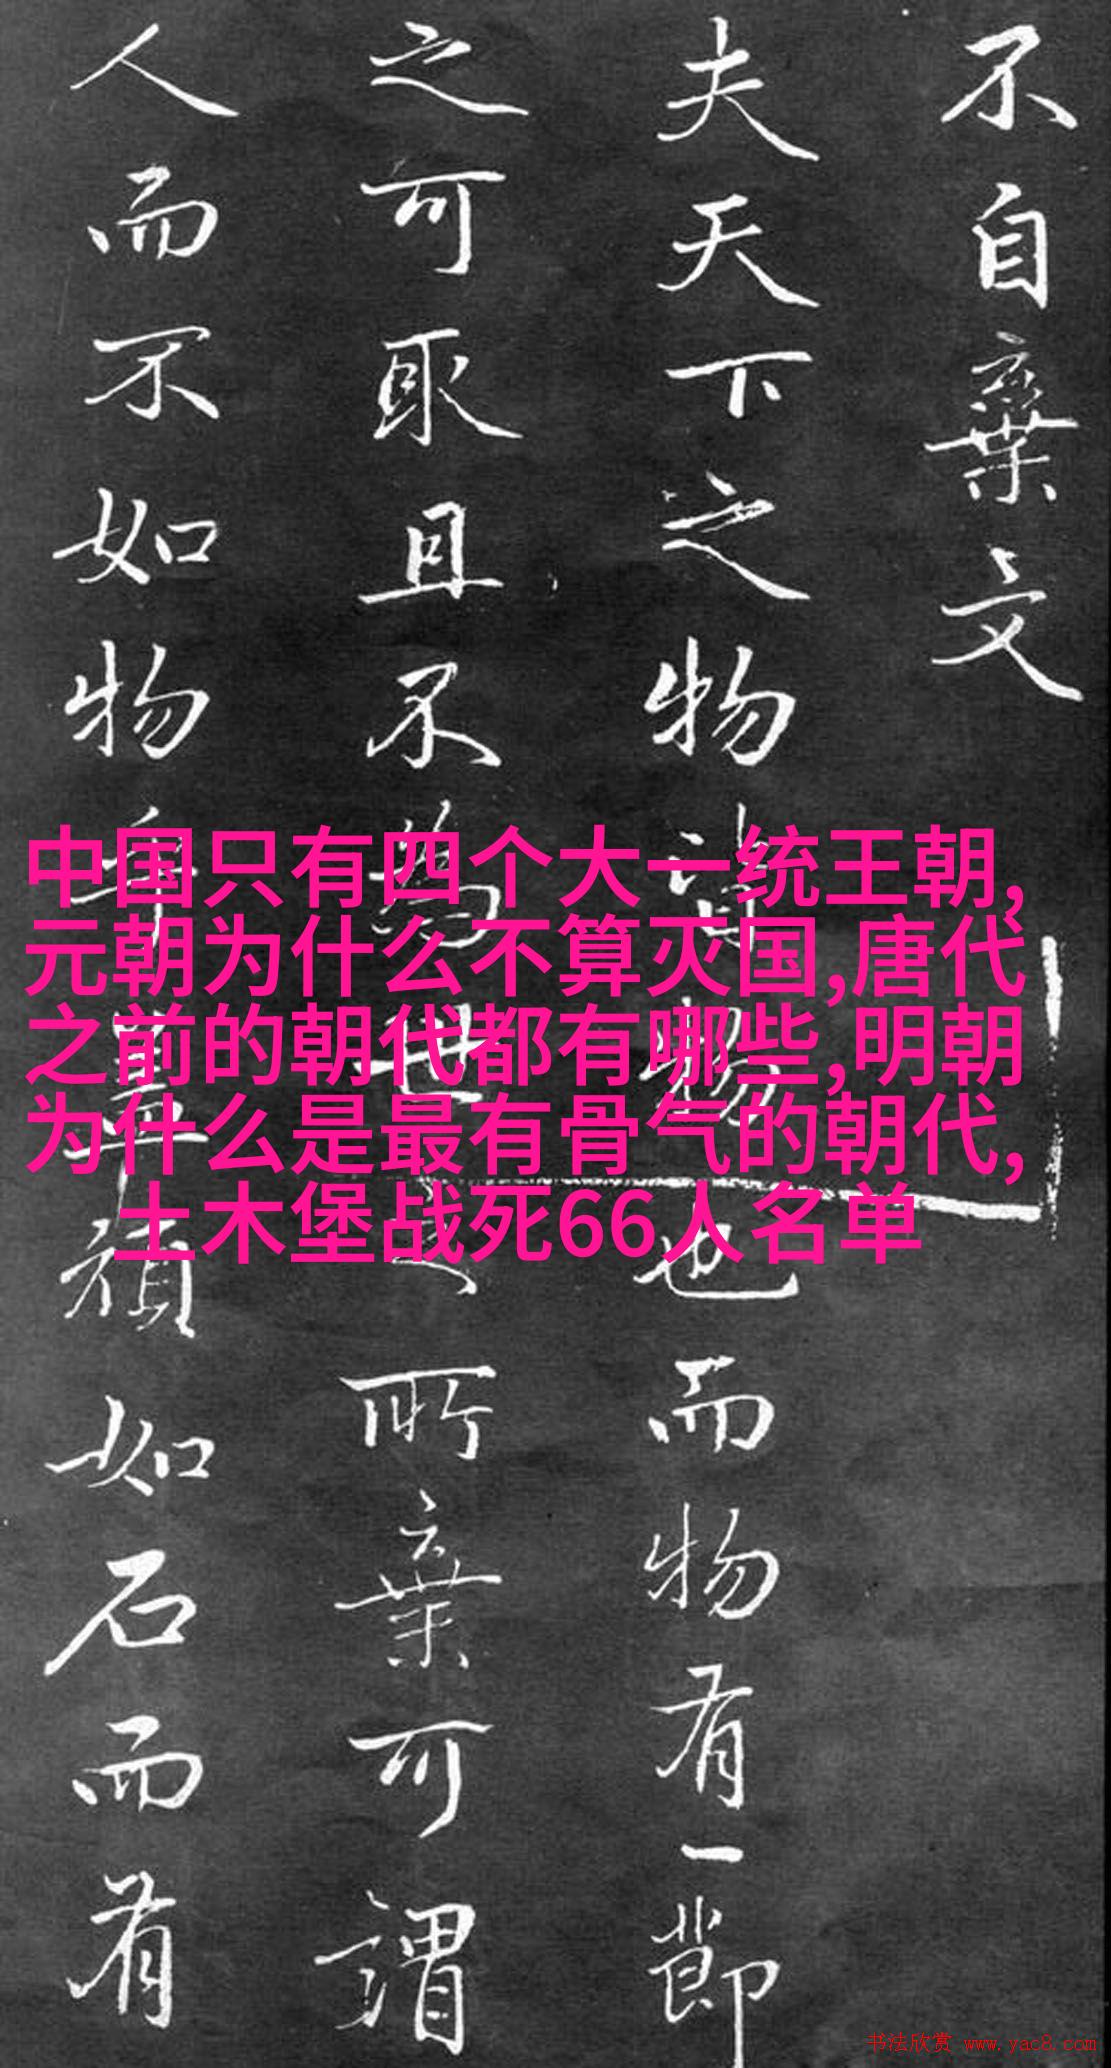 不自棄文
夫天下之物皆物也而物有一節
之可取且不為世之所棄可謂
人而不如物乎蓋頑如石而有
中国只有四个大一统王朝,
元朝为什么不算灭国,唐代
之前的朝代都有哪些,明朝
为什么是最有骨气的朝代,
土木堡战死66人名单
书法欣赏 www.yac8.com